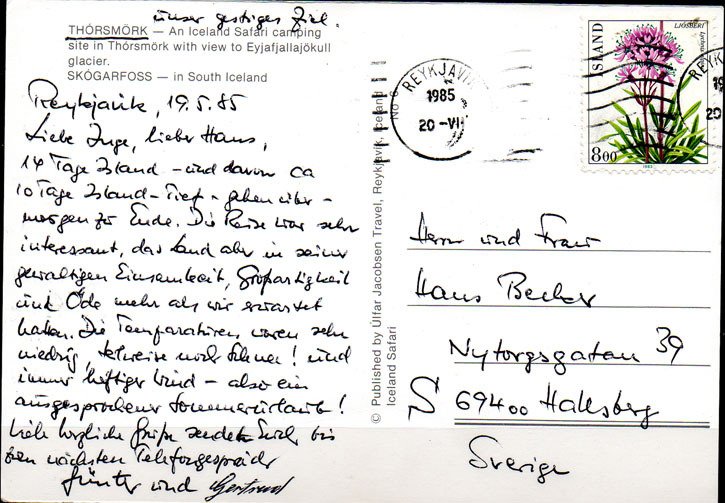 unser gestriges Ziel.
THÓRSMÖRK — An Iceland Safari camping
site in Thórsmörk with view to Eyjafjallajökull
glacier.
SKÓGARFOSS — in South Iceland
Reykjavik, 19.5.85
Liebe Inge, lieber Hans,
14 Tage Island – und davon ca
10 Tage Island-Tief – gehen über-
morgen zu Ende. Die Reise war sehr
interessant, das Land aber in seiner
gewaltigen Einsamkeit, Großartigkeit
und Öde mehr als wir erwartet
hatten. Die Temperaturen waren sehr
niedrig, teilweise noch Schnee! und
immer heftiger Wind – also ein
ausgesprochener Sommerurlaub!
Viele herzliche Grüße sendet Euch bis
zum nächsten Telefongespräch
Günter und Gertrud
© Published by Ulfar Jacobsen Travel, Reykjavik, Iceland No. 6
Iceland Safari
REYKJAVÍK
1985
20-VI
ÍSLAND
LJÓSBERI
800
1983
REYKJAV
19
20
Herrn und Frau
Hans Becker
Nytorgsgatan 39
S 69400 Hallsberg
Sverige